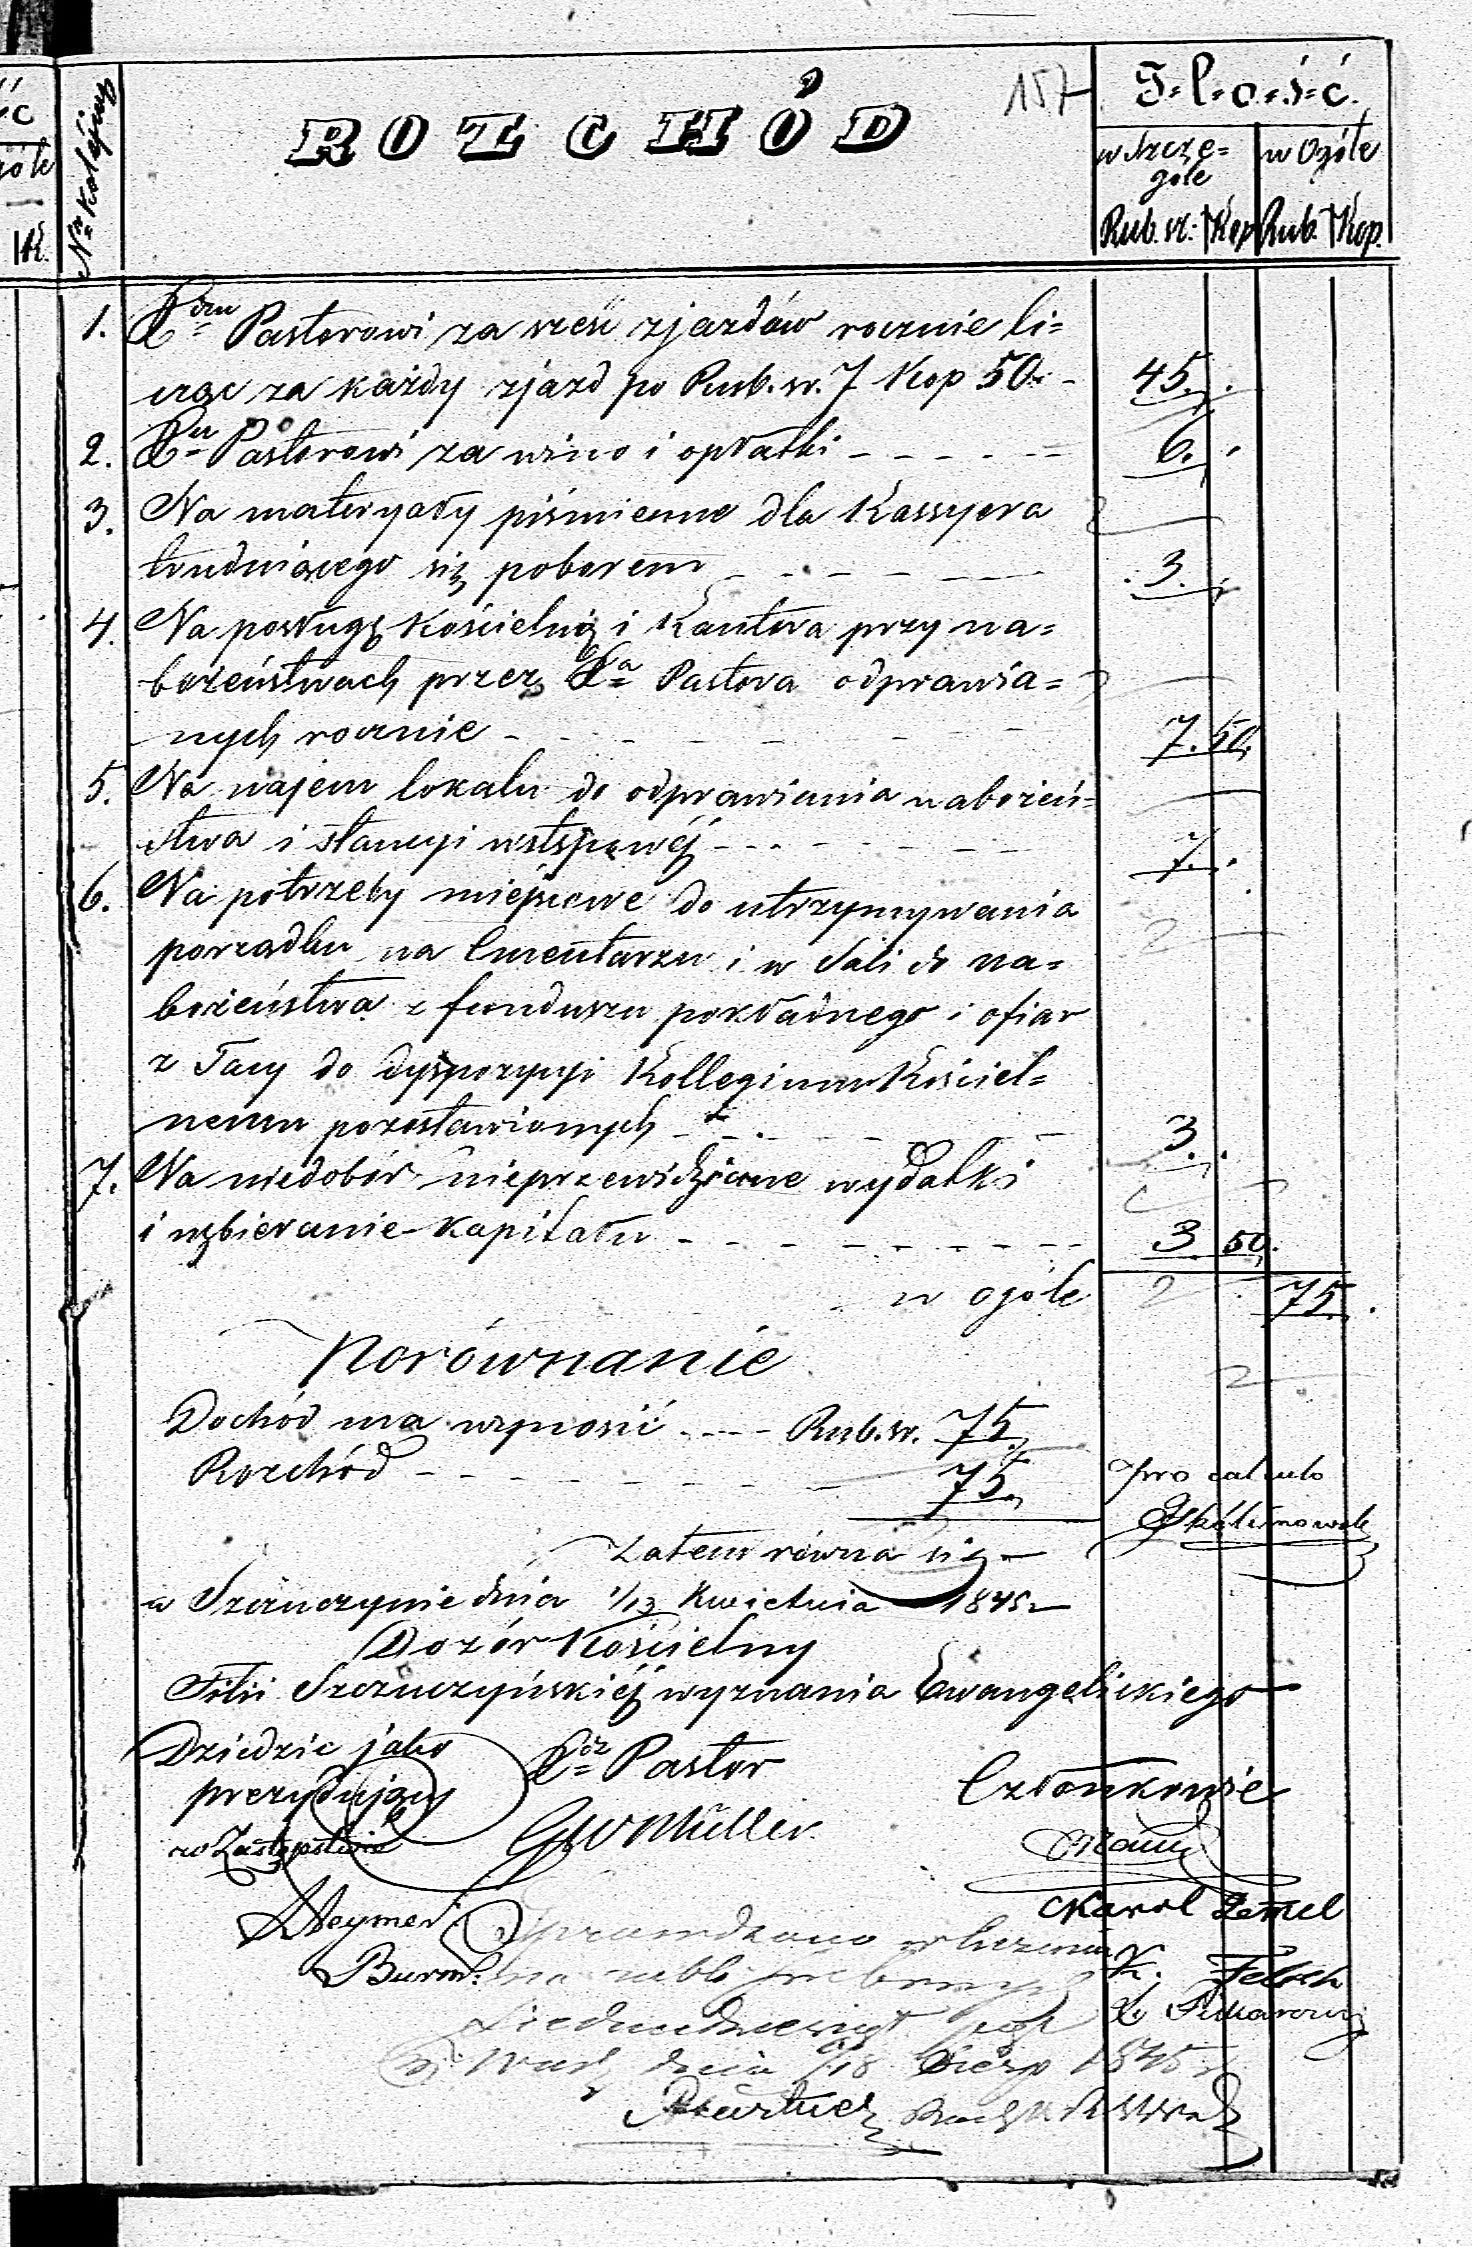 157
I-l-o-ś-ć
ROZCHÓD
Nr kolejny
w szcze=
góle
w Ogóle
Rub. sr. Kop Rub. Kop.
1. Xdzu Pastorowi za sześć zjazdów rocznie li=
cząc za każdy zjazd po Rub. sr. 7 Kop 50. 45. .
2. Xdu Pastorowi za wino i opłatki 6. .
3. Na materyały piśmienne dla Kassyera
trudniącego się poborem 3. .
4. Na posługę Kościelną i Kantora przy na=
bożeństwach przez Xa Pastora odprawia=
nych rocznie 7. 50.
5. Na najem lokalu do odprawiania nabożeń=
stwa i stancyi wstępnéj 7. .
6. Na potrzeby miejscowe do utrzymywania
porządku na Cmentarzu i w Sali do na=
bożeństwa z funduszu pokładnego i ofiar
z Tacy do dyspozycyi Kollegium Kościel=
nemu pozostawionych 3. .
7. Na niedobór nieprzewidziane wydatki
i uzbieranie kapitału 3 50.
w ogóle 75.
Porównanie
Dochód ma wynosić Rub. sr. 75.
Rozchód 75.
pro calculo
Zatem równa się
w Szczuczynie dnia 1/13 Kwietnia 1845
Dozór Kościelny
Filii Szczuczyńskiéj wyznania Ewangelickiego
Dziedzic jako
prezydujący
w Zastępstwie
Xdz Pastor
GW Müller.
Członkowie
Karol
Burm.
K.
Sprawdzono
dnia 1845